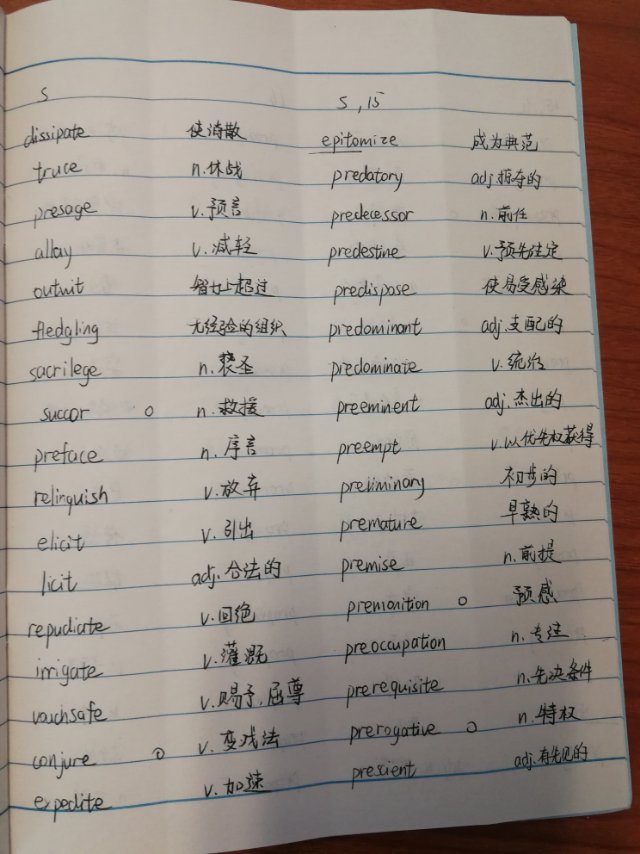 5 5,15
dissipate 使消散 epitomize 成为典范
truce n.休战 predatory adj.掠夺的
presage v.预言 predecessor n.前任
allay v.减轻 predestine v.预先注定
outwit 智力上超过 predispose 使易受感染
fledgling 无经验的组织 predominant adj.支配的
sacrilege n.亵圣 predominate v.统治
succor n.救援 preeminent adj.杰出的
preface n.序言 preempt v.以优先权获得
relinquish v.放弃 preliminary 初步的
elicit v.引出 premature 早熟的
licit adj.合法的 premise n.前提
repudiate v.回绝 premonition 预感
irrigate v.灌溉 preoccupation n.专注
vouchsafe v.赐予,屈尊 prerequisite n.先决条件
conjure v.变戏法 prerogative n.特权
expedite v.加速 prescient adj.有先见的